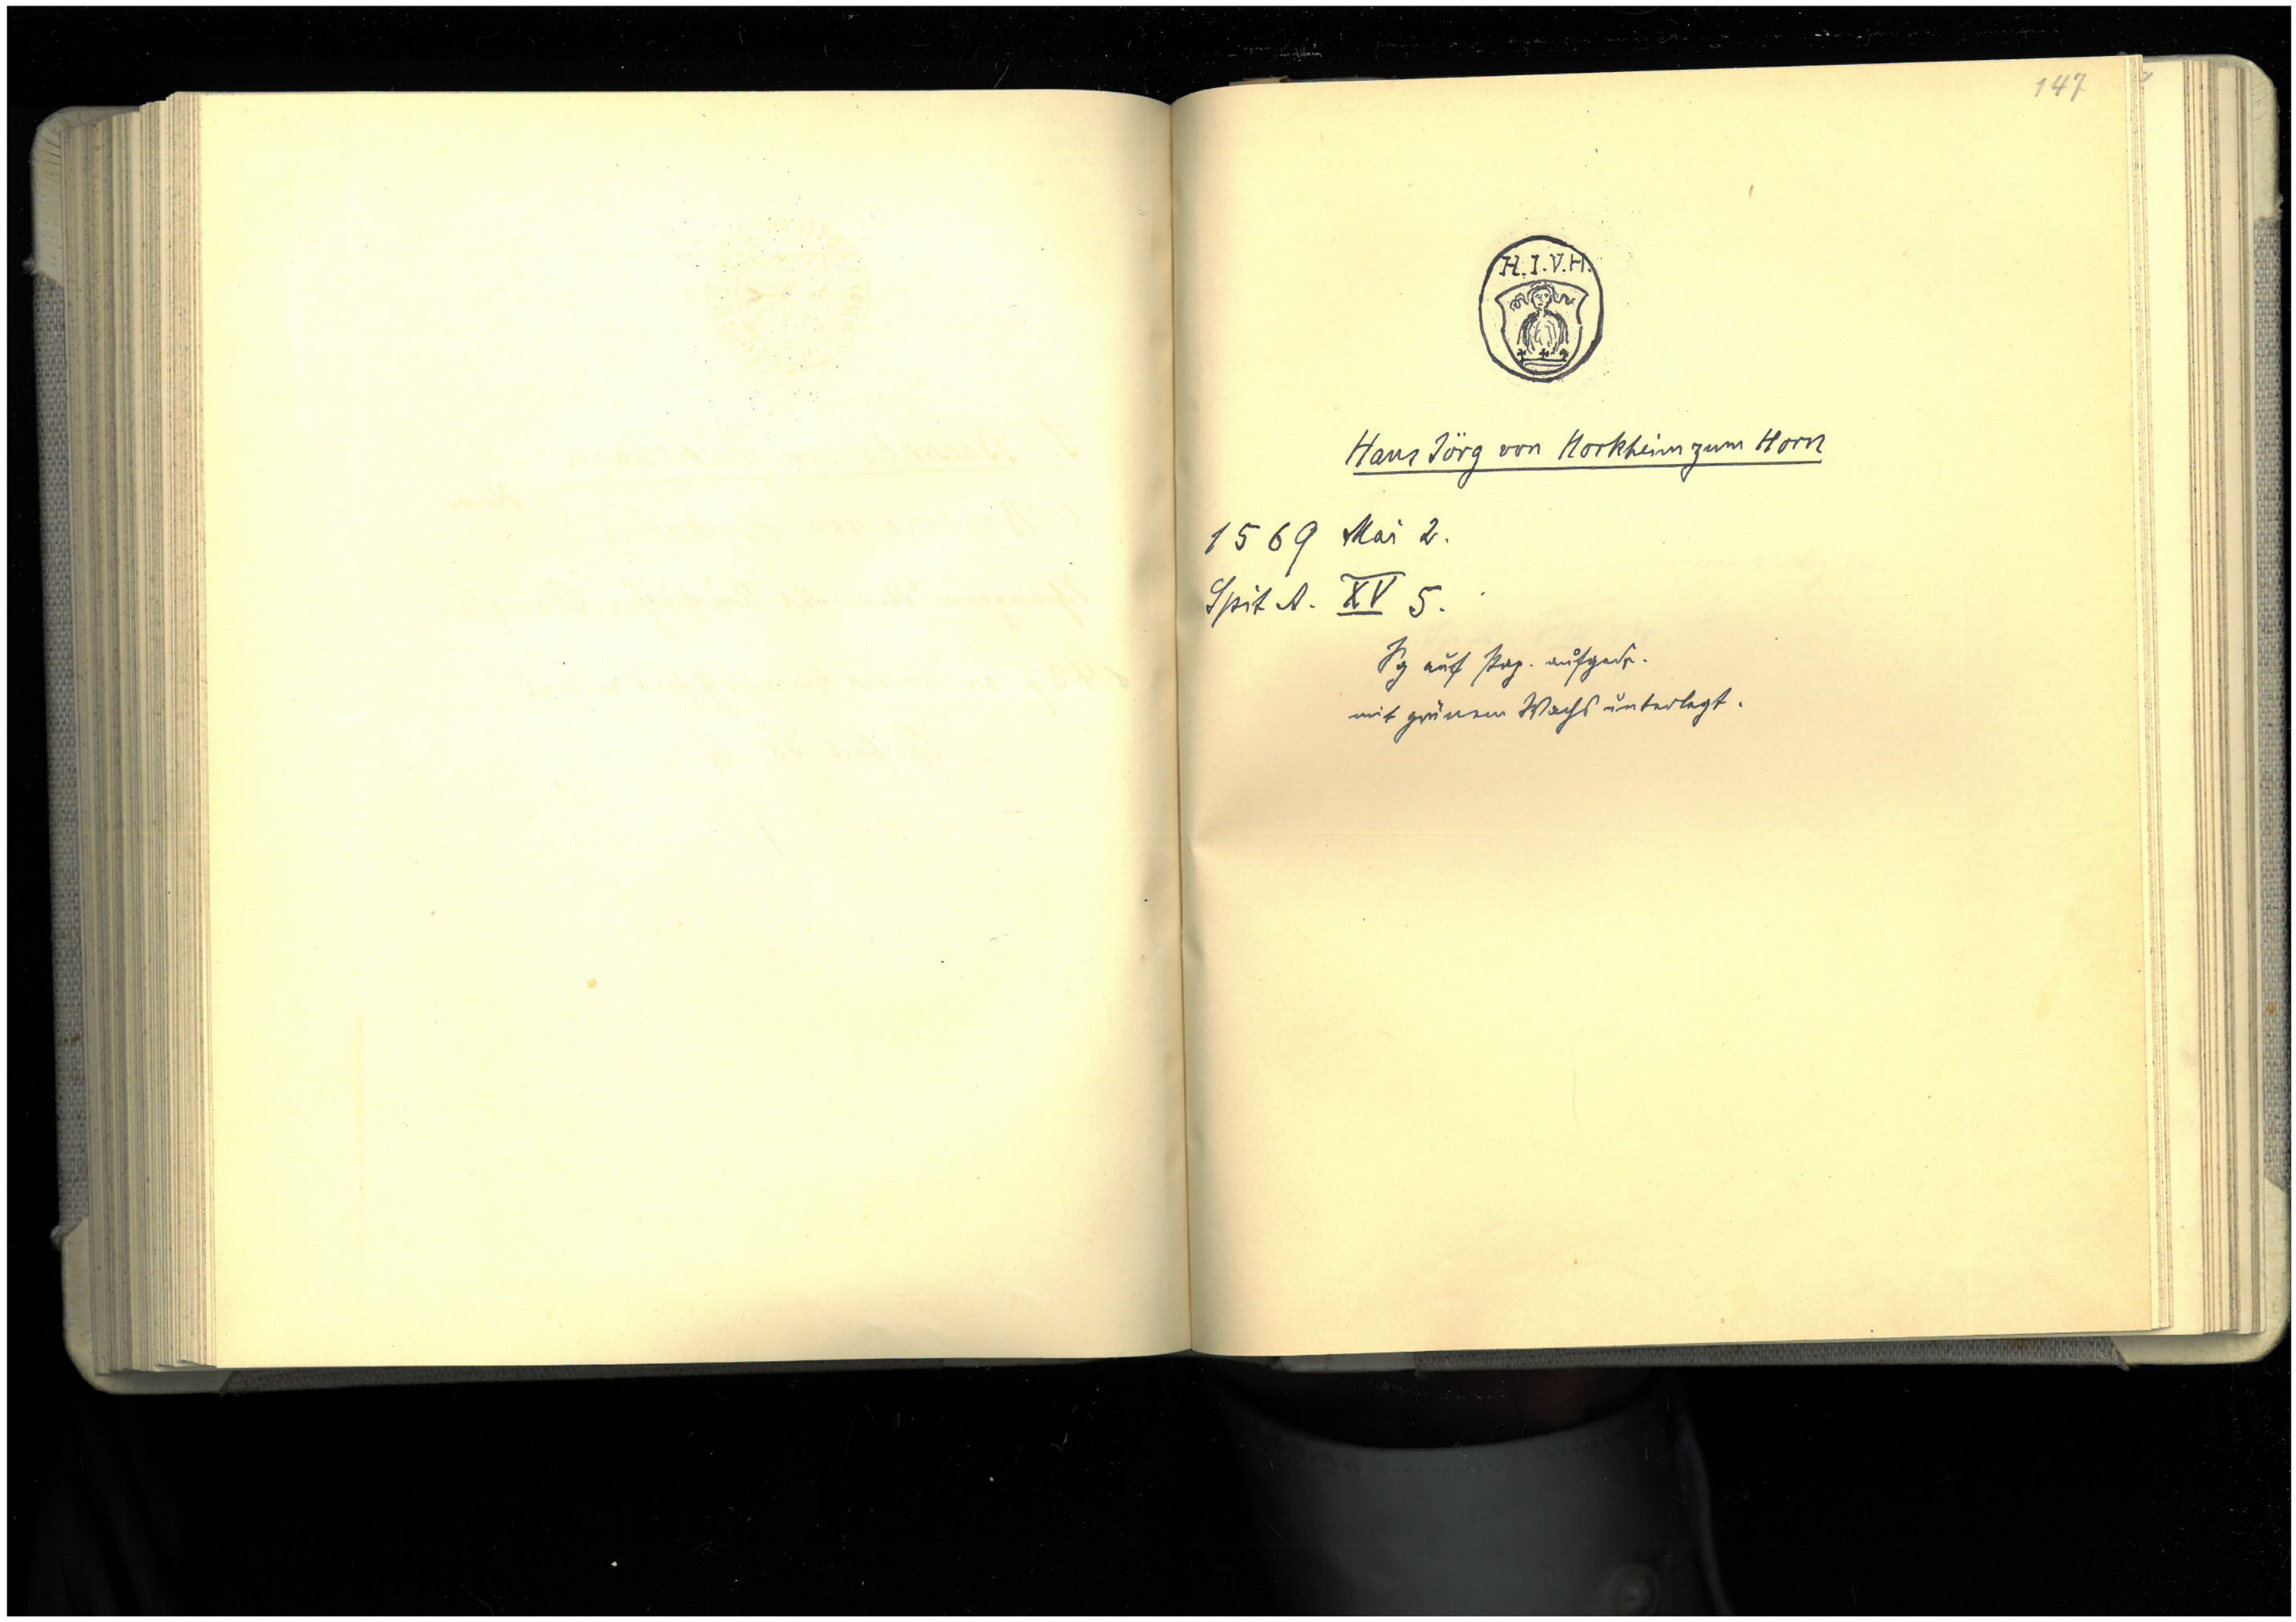 147
H.I.V.H.
Hans Jörg von Horkheim zum Horn
1569 Mai 2.
Spit A. XV 5.
Sg auf Pap. aufgedr.
mit grünem Wachs unterlegt.